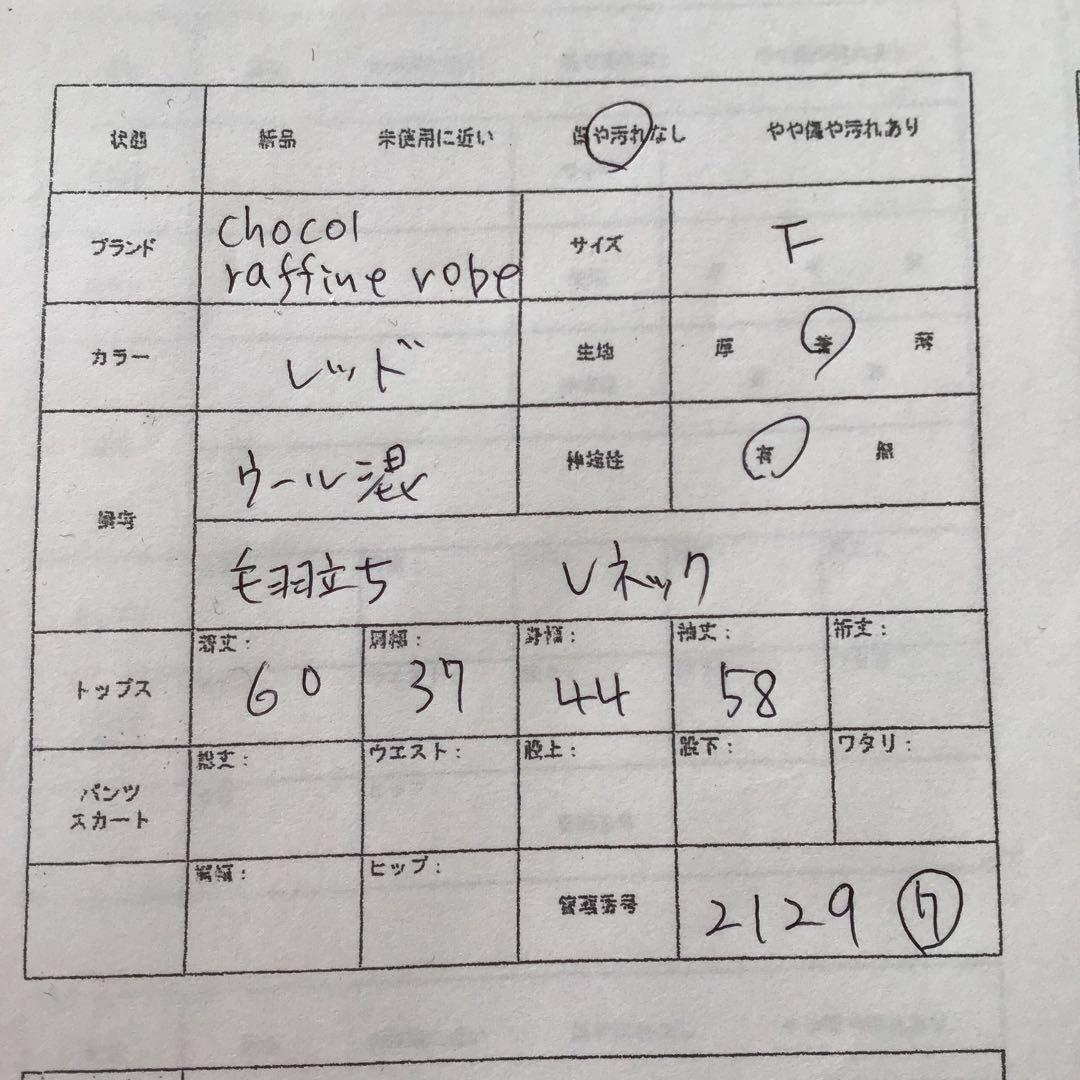 状態 新品 未使用に近い 傷や汚れなし やや傷や汚れあり
ブランド chocol raffine robe サイズ F
カラー レッド 生地 厚 普 薄
備考 ウール混 伸縮性 有 無
毛羽立ち Vネック
トップス 着丈: 60 肩幅: 37 身幅: 44 袖丈: 58 裄丈:
パンツ スカート 総丈: ウエスト: 股上: 股下: ワタリ:
裾幅: ヒップ: 管理番号 2129